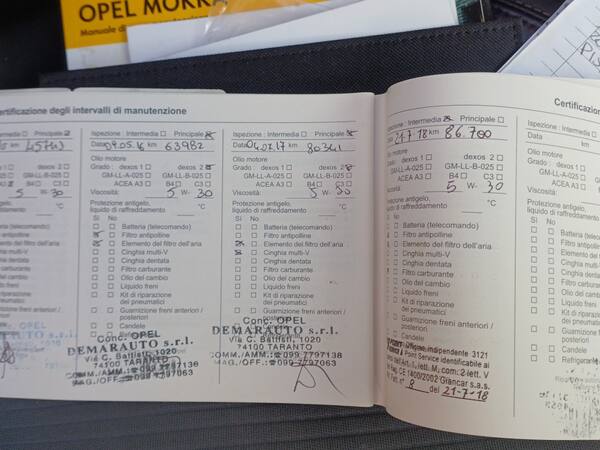 OPEL MOKKA
Manuale di
Certificazione degli intervalli di manutenzione
Ispezione: Intermedia Principale
Data 09.05.16 km 63982
Olio motore
Grado: dexos 1 dexos 2
GM-LL-A-025 GM-LL-B-025
ACEA A3 B4 C3
Viscosità: 5 W- 30
Protezione antigelo,
liquido di raffreddamento °C
Sì No
Batteria (telecomando)
Filtro antipolline
Elemento del filtro dell'aria
Cinghia multi-V
Cinghia dentata
Filtro carburante
Olio del cambio
Liquido freni
Kit di riparazione
dei pneumatici
Guarnizione freni anteriori /
posteriori
Candele
Conc. OPEL
DEMARAUTO s.r.l.
Via C. Battisti, 1020
74100 TARANTO
COMM./AMM.: ☎ 099 7797138
MAG./OFF.: ☎ 099 7797063
Ispezione: Intermedia Principale
Data 04.07.17 km 80341
Olio motore
Grado: dexos 1 dexos 2
GM-LL-A-025 GM-LL-B-025
ACEA A3 B4 C3
Viscosità: 5 W- 30
Protezione antigelo,
liquido di raffreddamento °C
Sì No
Batteria (telecomando)
Filtro antipolline
Elemento del filtro dell'aria
Cinghia multi-V
Cinghia dentata
Filtro carburante
Olio del cambio
Liquido freni
Kit di riparazione
dei pneumatici
Guarnizione freni anteriori /
posteriori
Conc. OPEL
DEMARAUTO s.r.l.
Via C. Battisti, 1020
74100 TARANTO
COMM./AMM.: ☎ 099 7797138
MAG./OFF.: ☎ 099 7797063
Ispezione: Intermedia Principale
Data 21-7-18 km 86.700
Olio motore
Grado: dexos 1 dexos 2
GM-LL-A-025 GM-LL-B-025
ACEA A3 B4 C3
Viscosità: 5 W- 30
Protezione antigelo,
liquido di raffreddamento °C
Sì No
Batteria (telecomando)
Filtro antipolline
Elemento del filtro dell'aria
Cinghia multi-V
Cinghia dentata
Filtro carburante
Olio del cambio
Liquido freni
Kit di riparazione
dei pneumatici
Guarnizione freni anteriori /
posteriori
Candele
Officina indipendente 3121
Point Service identificabile ai
dell'Art. 1, lett. M, com. 2 lett. V
Reg. CE 1400/2002 Giancar s.a.s.
fatt. n° 8 del 21-7-18
Certificazione
Ispezione: Inter
Data
Olio motore
Grado:
Viscosità:
Protezione antigelo,
liquido di raffreddam
Sì No
Batteria (tel
Filtro antipo
Elemento d
Cinghia mul
Cinghia den
Filtro carbu
Olio del cam
Liquido freni
Kit di ripara
dei pneuma
Guarnizione
posteriori
Candele
Refrigerante